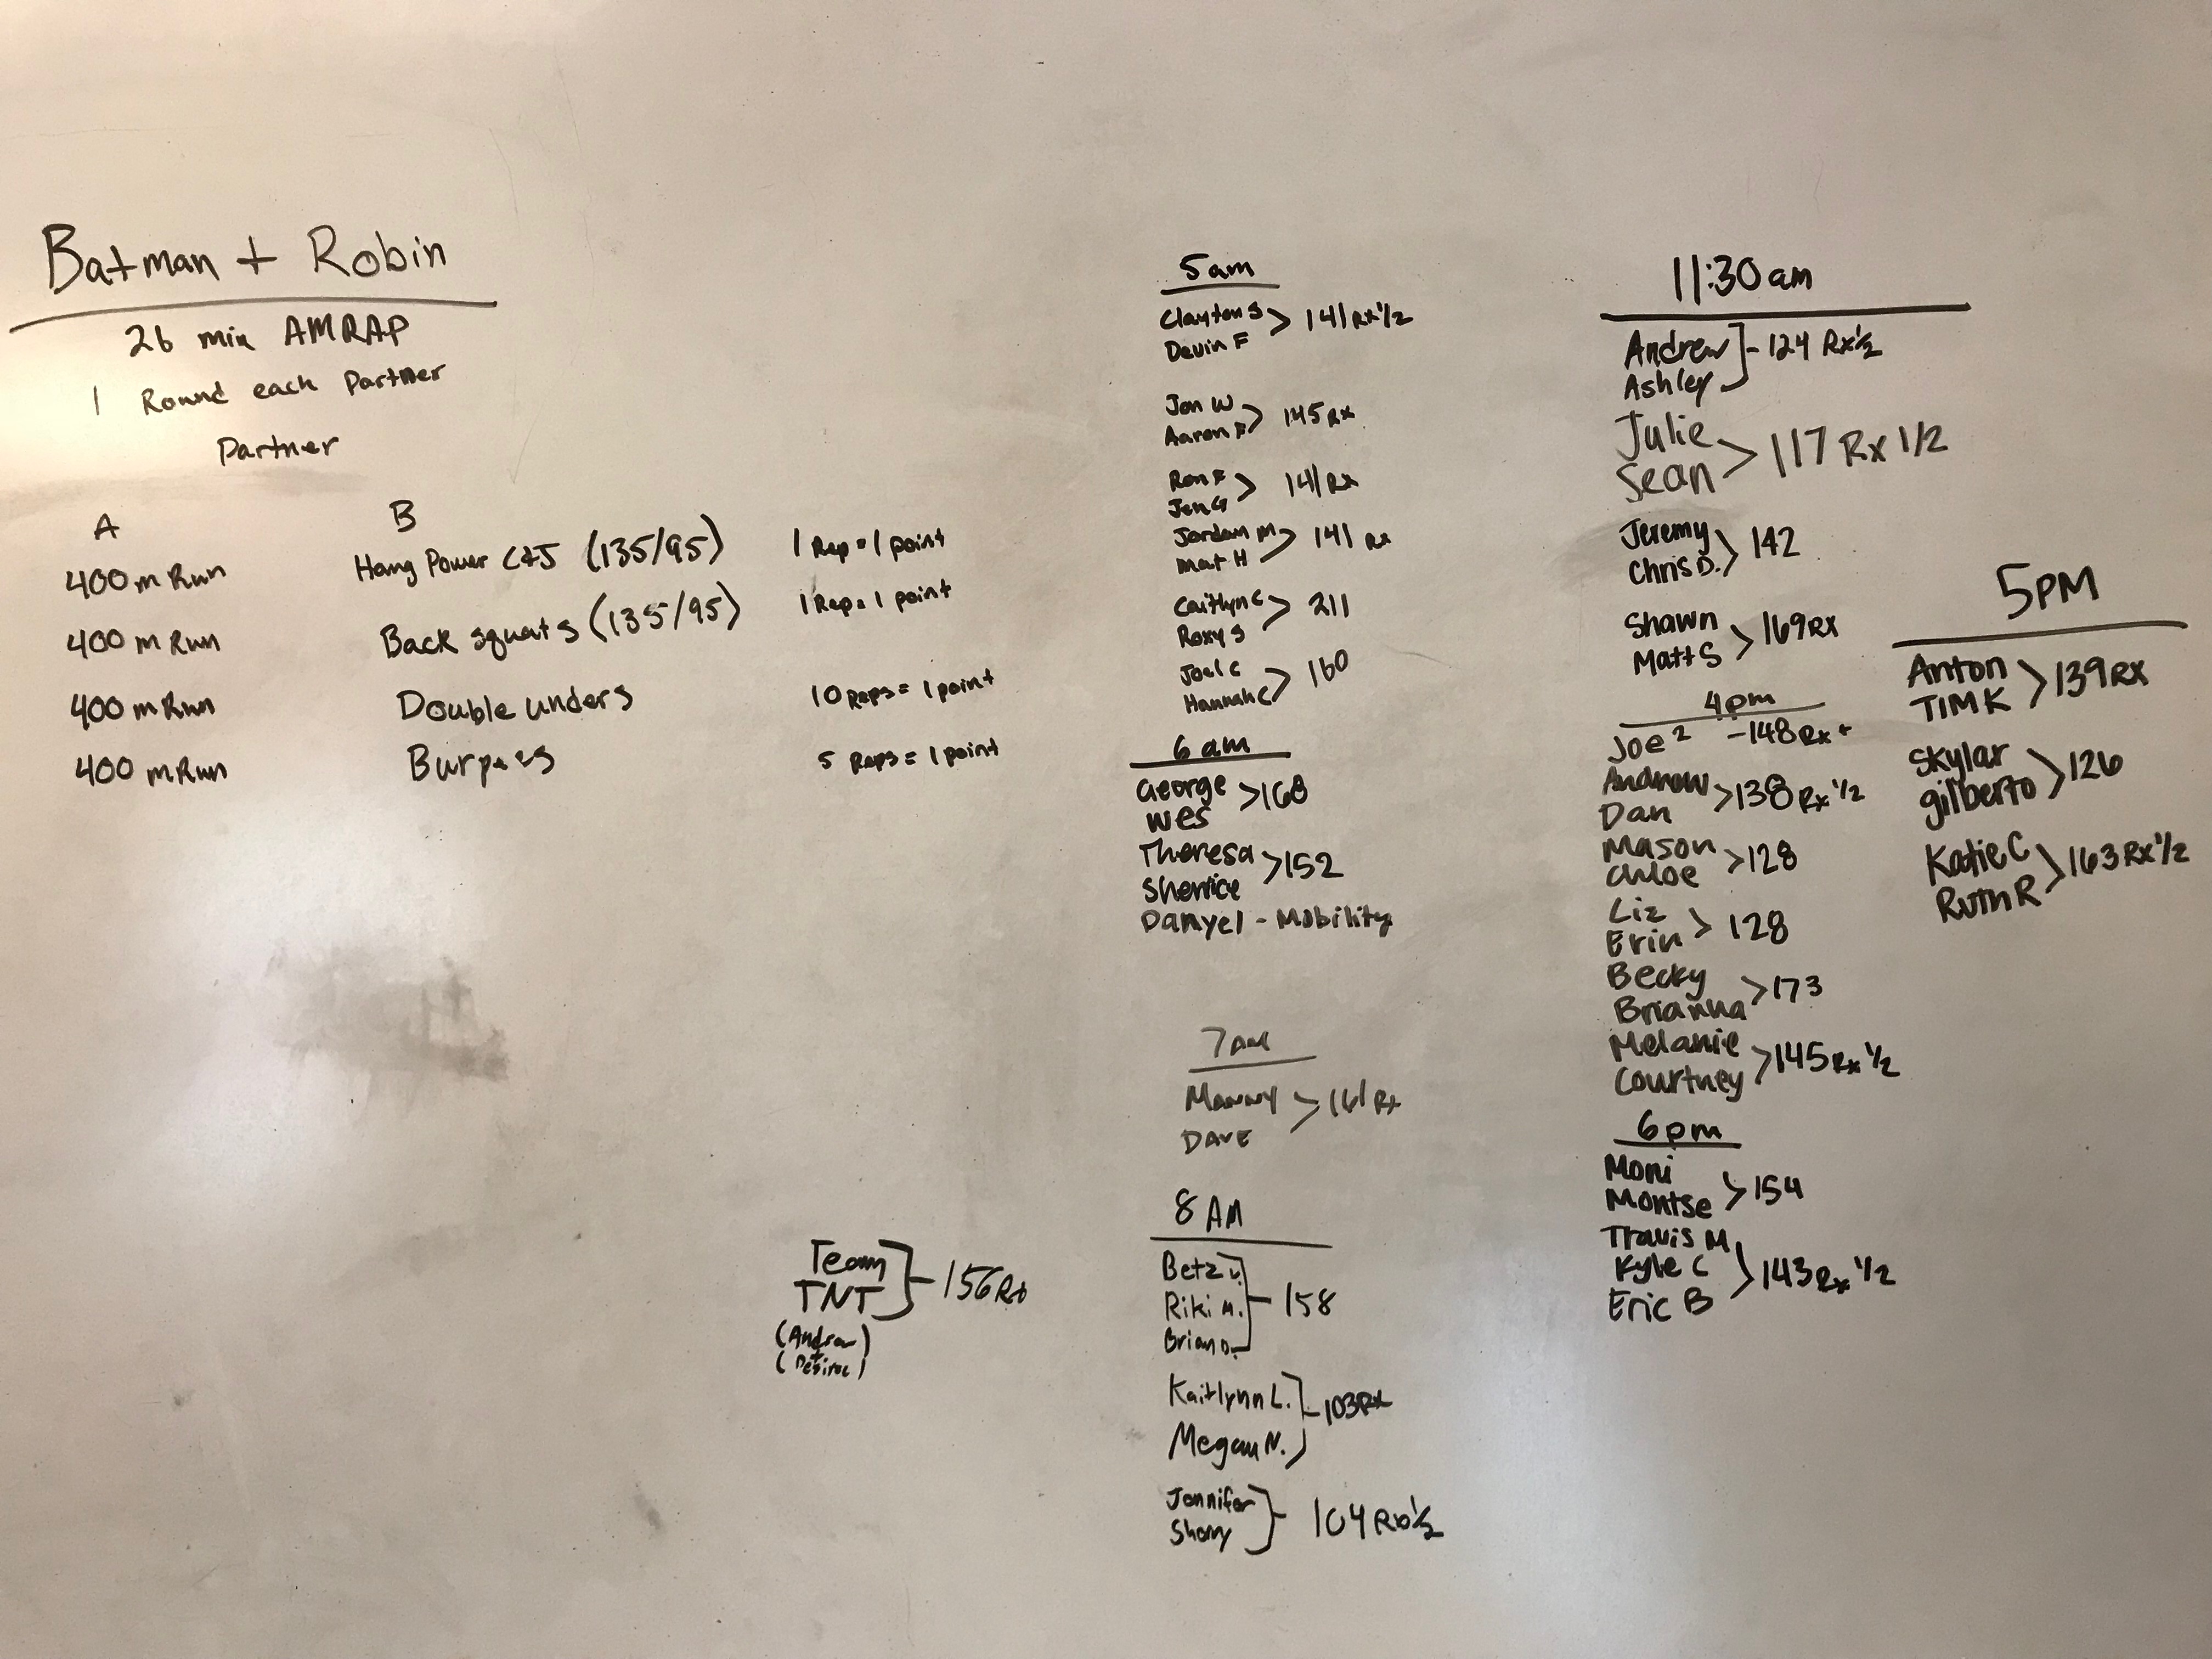 Batman + Robin
26 min AMRAP
1 Round each Partner
Partner
A B
400 m Run Hang Power C&J (135/95) 1 Rep = 1 point
400 m Run Back squats (135/95) 1 Rep = 1 point
400 m Run Double unders 10 Reps = 1 point
400 m Run Burpees 5 Reps = 1 point
Team
TNT 156 Rx
(Andrew)
+
(Desirae)
5am
Clayton S
Devin F > 141 Rx 1/2
Jon W
Aaron F > 145 Rx
Ron F
Jen G > 141 Rx
Jordan M
Mat H > 141 Rx
Caitlyn C
Roxy S > 211
Joel C
Hannah C > 160
6 am
George
Wes > 168
Theresa
Sherrice > 152
Danyel - Mobility
7AM
Manny
Dave > 161 Rx
8 AM
Betz V.
Riki M. - 158
Brian D.
Kaitlynn L.
Megan N. 103 Rx
Jennifer
Sherry - 104 Rx 1/2
11:30 am
Andrew
Ashley - 124 Rx 1/2
Julie
Sean > 117 Rx 1/2
Jeremy
Chris D. > 142
Shawn
Matt S > 169 Rx
4pm
Joe 2 - 148 Rx +
Andrew
Dan > 138 Rx 1/2
Mason
Chloe > 128
Liz
Erin > 128
Becky
Brianna > 173
Melanie
Courtney > 145 Rx 1/2
6pm
Moni
Montse > 154
Travis M
Kyle C > 143 Rx 1/2
Eric B
5PM
Anton
TIM K > 139 RX
Skylar
gilberto > 126
Katie C
Ruth R > 163 Rx 1/2